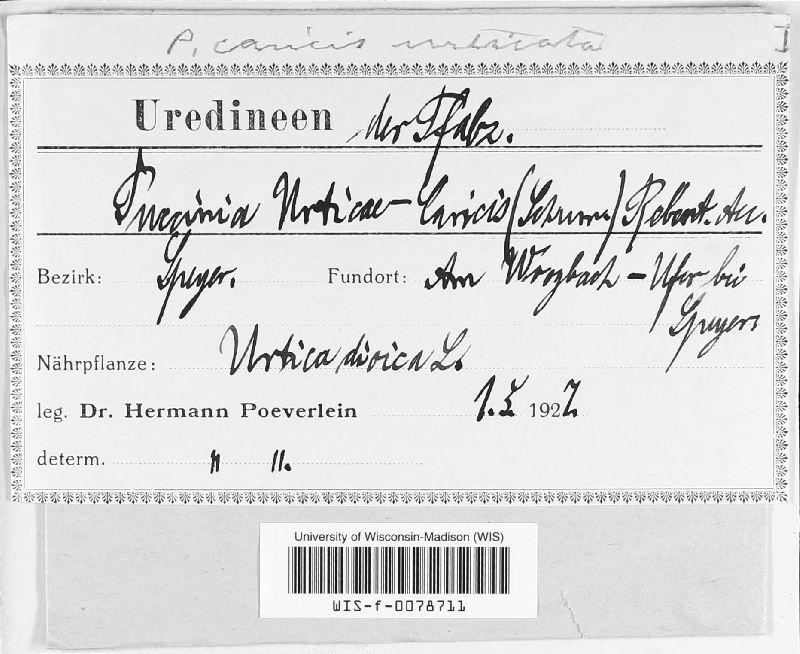 P. caricis urticata
Uredineen der Pfalz.
Puccinia Urticae-Caricis (Schum.) Rebent.
Bezirk: Speyer. Fundort: Am Woogbach-Ufer bei
Speyer.
Nährpflanze: Urtica dioica L.
leg. Dr. Hermann Poeverlein 1.5. 1927.
determ. " ".
University of Wisconsin-Madison (WIS)
WIS-f-0078711